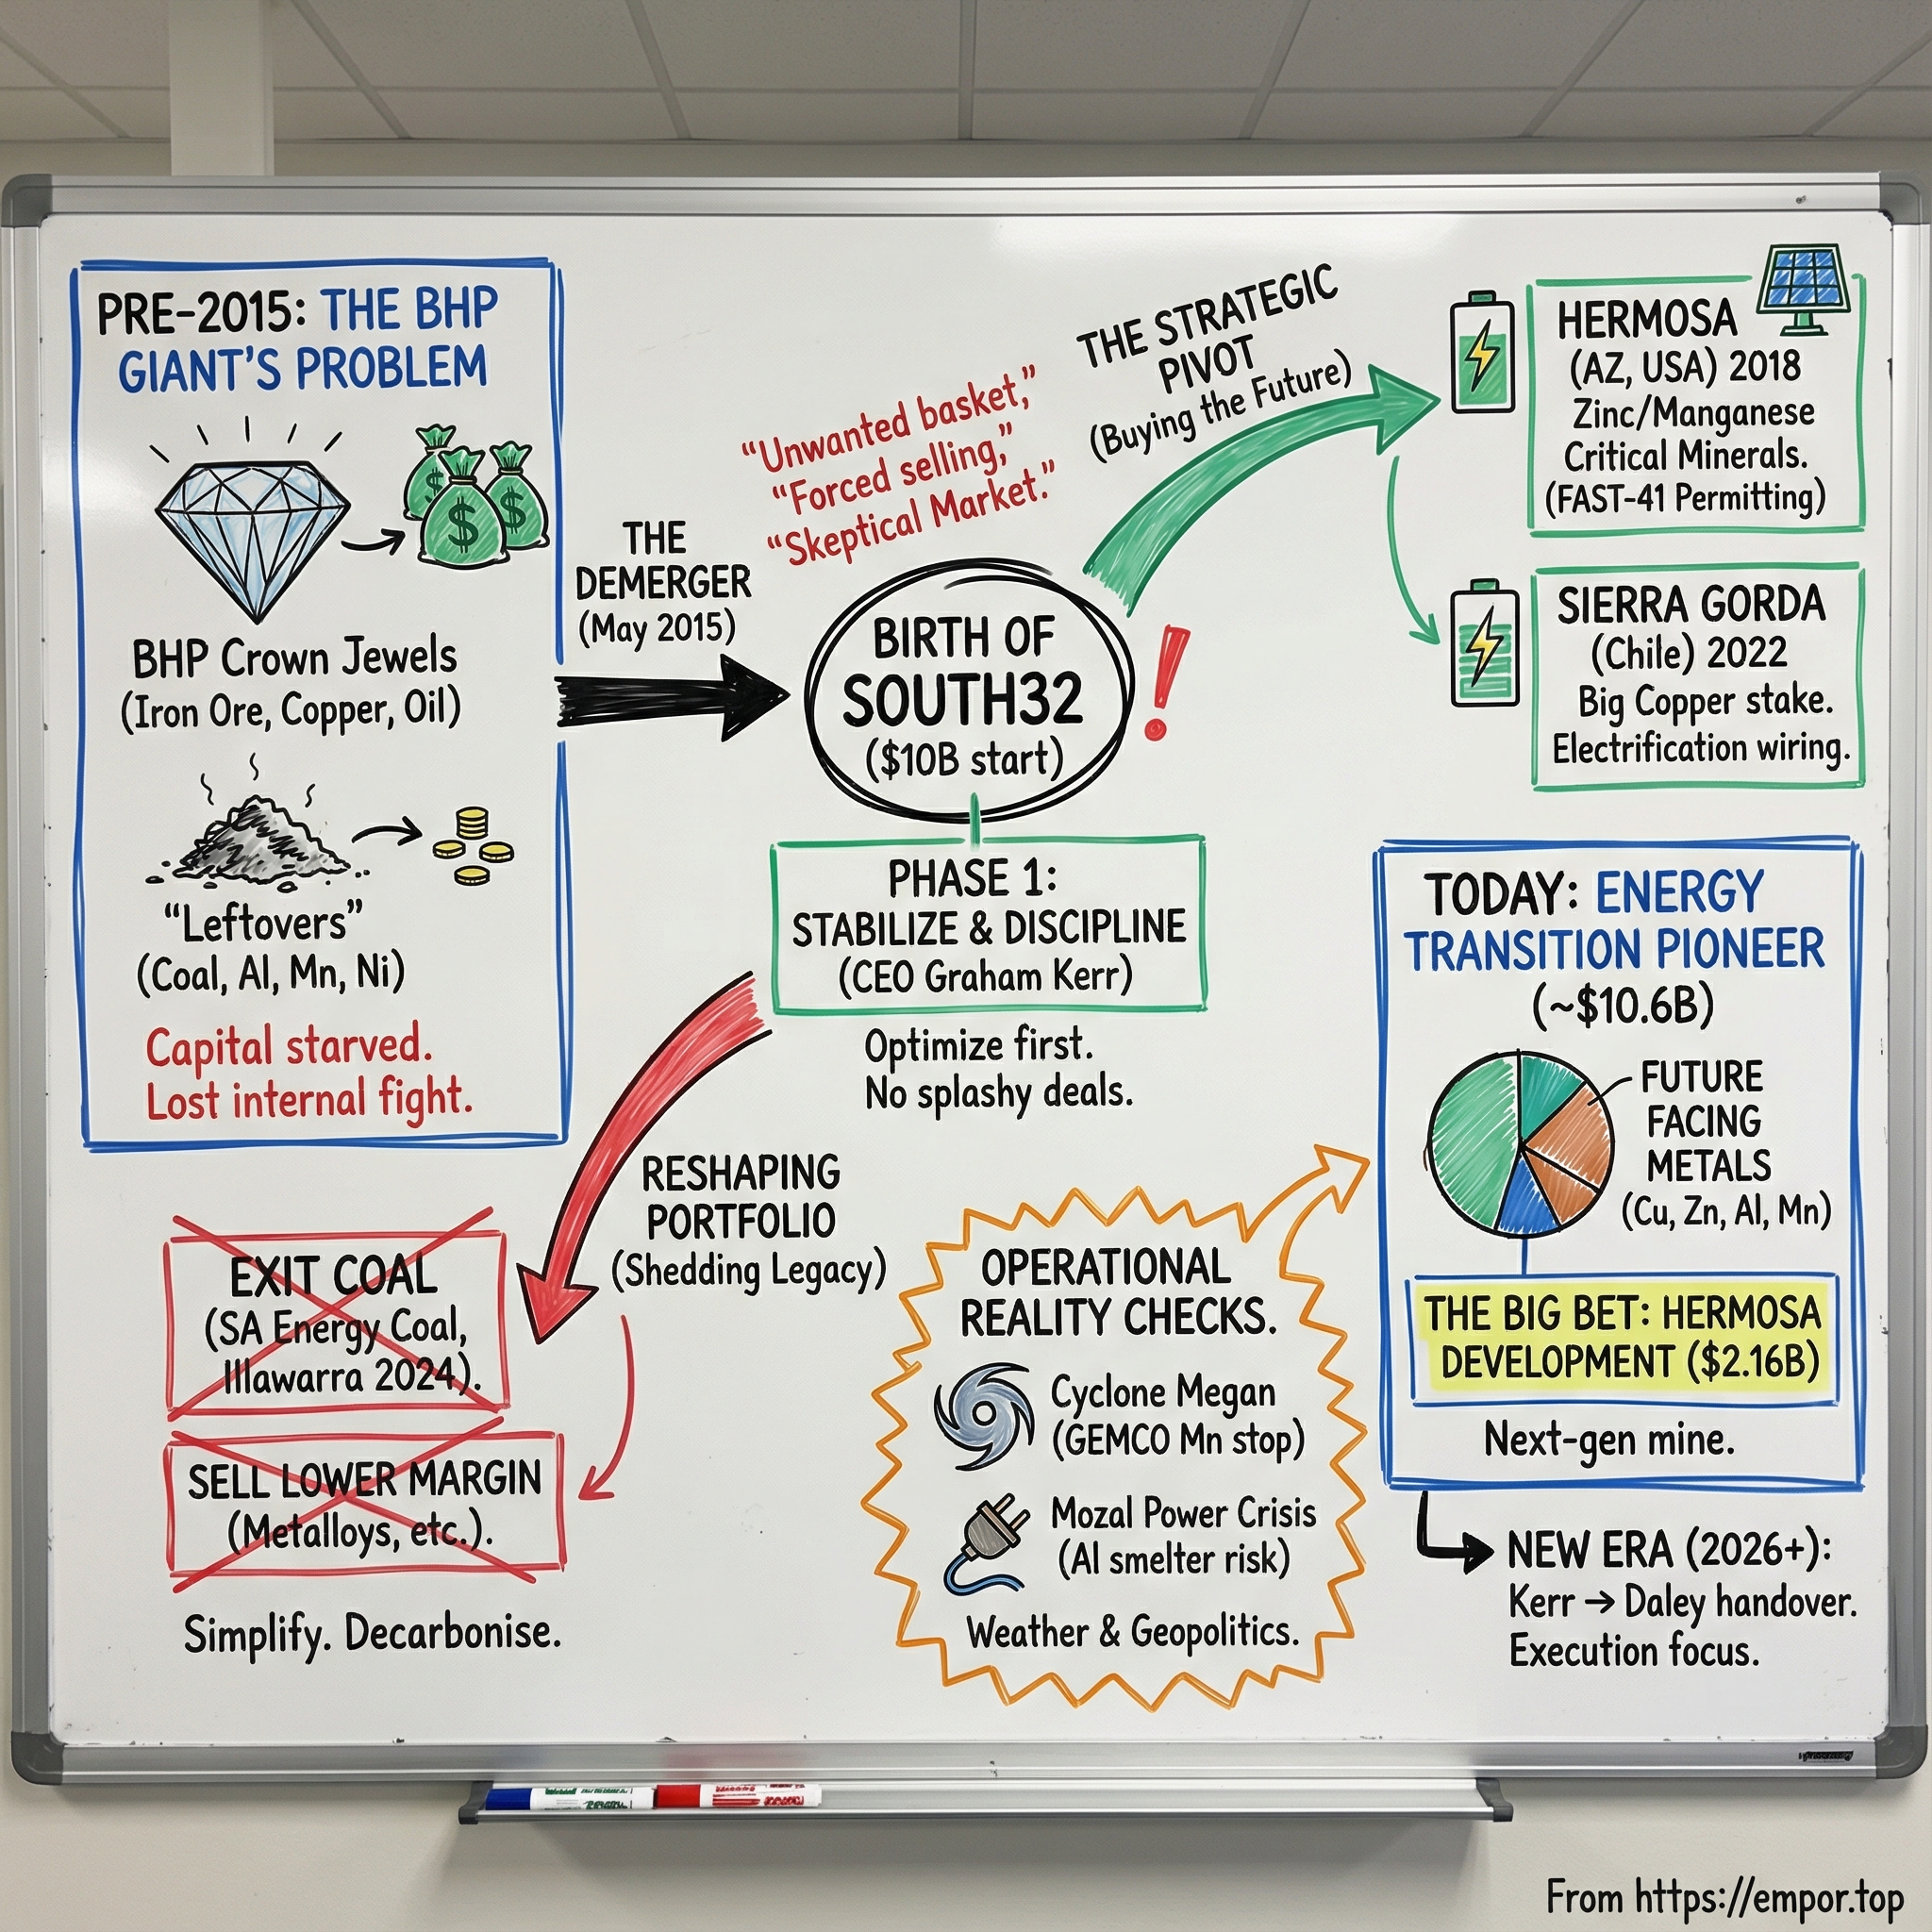 PRE-2015: THE BHP
GIANT'S PROBLEM
$
$
$
BHP Crown Jewels
(Iron Ore, Copper, Oil)
"Leftovers"
(Coal, Al, Mn, Ni)
Capital starved.
Lost internal fight.
THE
DEMERGER
(May 2015)
"Unwanted basket,"
"Forced selling,"
"Skeptical Market."
BIRTH OF
SOUTH32
($10B start)
!
THE STRATEGIC
PIVOT
(Buying the Future)
HERMOSA
(AZ, USA) 2018
Zinc/Manganese
Critical Minerals.
(FAST-41 Permitting)
SIERRA GORDA
(Chile) 2022
Big Copper stake.
Electrification wiring.
PHASE 1:
STABILIZE & DISCIPLINE
(CEO Graham Kerr)
Optimize first.
No splashy deals.
RESHAPING
PORTFOLIO
(Shedding Legacy)
EXIT COAL
(SA Energy Coal,
Illawarra 2024).
SELL LOWER MARGIN
(Metalloys, etc.).
Simplify. Decarbonise.
OPERATIONAL
REALITY CHECKS.
Cyclone Megan
(GEMCO Mn stop)
Mozal Power Crisis
(Al smelter risk)
Weather & Geopolitics.
TODAY: ENERGY
TRANSITION PIONEER
(~$10.6B)
FUTURE
FACING
METALS
(Cu, Zn, Al, Mn)
THE BIG BET: HERMOSA
DEVELOPMENT ($2.16B)
Next-gen mine.
NEW ERA (2026+):
Kerr → Daley handover.
Execution focus.
From https://empor.top